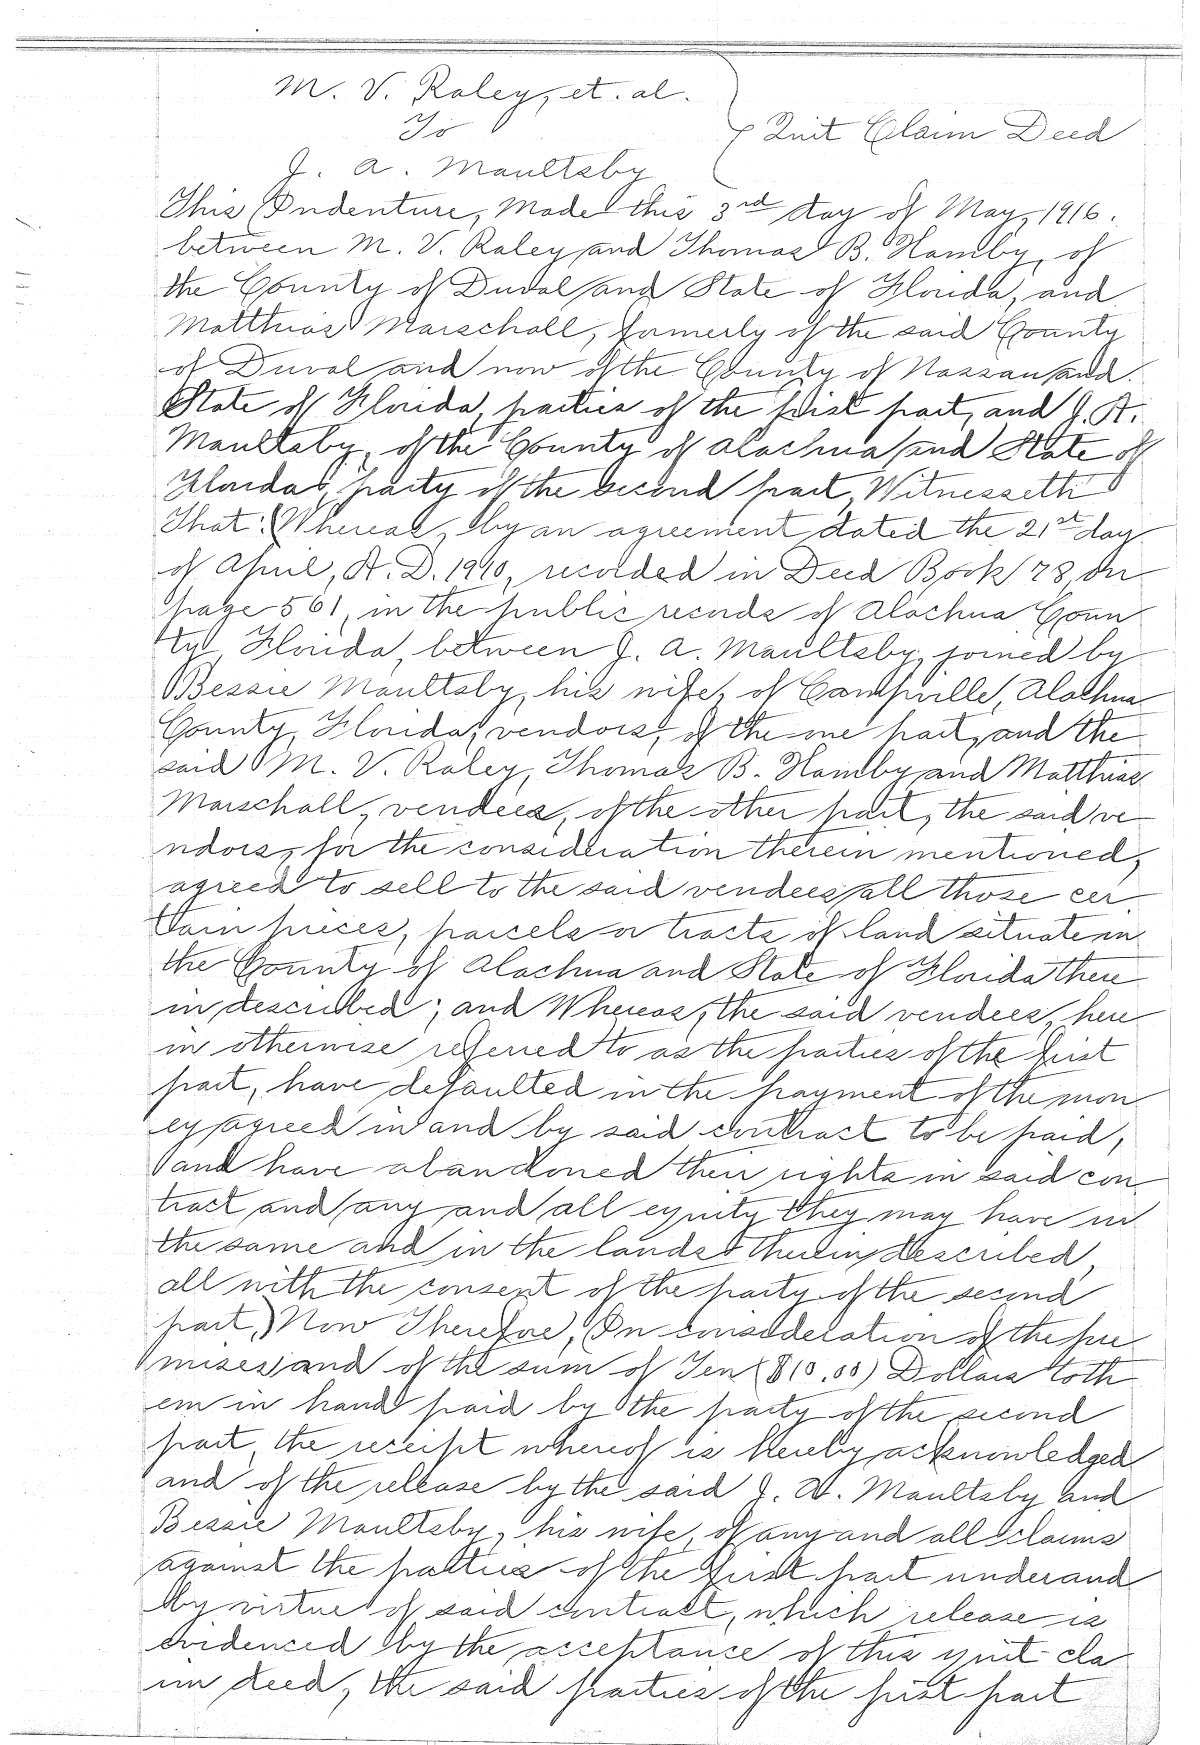 M. V. Raley, et. al.
To
Quit Claim Deed
J. A. Maultsby
This Indenture, Made this 3rd day of May, 1916.
between M. V. Raley and Thomas B. Hamby, of
the County of Duval and State of Florida, and
Matthias Marschall, formerly of the said County
of Duval and now of the County of Nassau and
State of Florida, parties of the first part, and J. A.
Maultsby, of the County of Alachua and State of
Florida, party of the second part, Witnesseth
That: (Whereas, by an agreement dated the 21st day
of April, A. D. 1910, recorded in Deed Book 78, on
page 561, in the public records of Alachua Coun
ty, Florida, between J. A. Maultsby, joined by
Bessie Maultsby, his wife, of Campville, Alachua
County, Florida, vendors, of the one part, and the
said M. V. Raley, Thomas B. Hamby and Matthias
Marschall, vendees, of the other part, the said ve
ndors, for the consideration therein mentioned,
agreed to sell to the said vendees all those cer
tain pieces, parcels or tracts of land situate in
the County of Alachua and State of Florida there
in described; and Whereas, the said vendees, here
in otherwise referred to as the parties of the first
part, have defaulted in the payment of the mon
ey agreed in and by said contract to be paid,
and have abandoned their rights in said con
tract and any and all equity they may have in
the same and in the lands therein described,
all with the consent of the party of the second
part,) Now Therefore, In consideration of the pre
mises and of the sum of Ten ($10.00) Dollars to th
em in hand paid by the party of the second
part, the receipt whereof is hereby acknowledged
and of the release by the said J. A. Maultsby and
Bessie Maultsby, his wife, of any and all claims
against the parties of the first part under and
by virtue of said contract, which release is
evidenced by the acceptance of this quit cla
im deed, the said parties of the first part